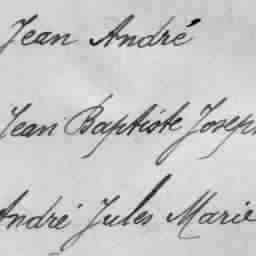 Jean André
Jean Baptiste Joseph
André Jules Marie